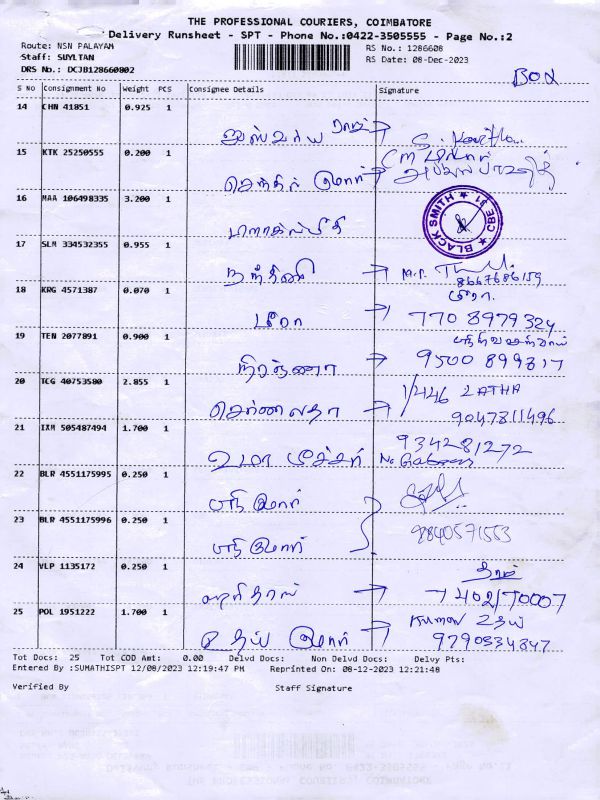 THE PROFESSIONAL COURIERS, COIMBATORE
Delivery Runsheet - SPT - Phone No.:0422-3505555 - Page No.:2
Route: NSN PALAYAM
RS No.: 1286608
Staff: SUYLTAN
RS Date: 08-Dec-2023
DRS No.: DCJB128660802
BOX
S No Consignment No Weight PCS Consignee Details Signature
14 CHN 41851 0.925 1
15 KTK 25250555 0.200 1
செந்தில் குமார்
16 MAA 106498335 3.200 1
BLACK SMITH ★ CBE 31 ★
17 SLM 334532355 0.955 1
நந்தினி
8667686159
18 KRG 4571387 0.070 1
மீரா.
மீரா 770 8979324
19 TEN 2077891 0.900 1
நிரஞ்சனா 9500 899817
20 TCG 40753580 2.855 1
1/446 LATHA
சொர்ணலதா 9047811496
21 IXM 505487494 1.700 1
9342281272
உமா
22 BLR 4551175995 0.250 1
ஸ்ரீ குமார்
23 BLR 4551175996 0.250 1
9840571553
ஸ்ரீ குமார்
24 VLP 1135172 0.250 1
ஹரிதாஸ் 7402170007
25 POL 1951222 1.700 1
Kumar உதய்
உதய் குமார் 9790334847
Tot Docs: 25 Tot COD Amt: 0.00 Delvd Docs: Non Delvd Docs: Delvy Pts:
Entered By :SUMATHISPT 12/08/2023 12:19:47 PM Reprinted On: 08-12-2023 12:21:48
Verified By Staff Signature